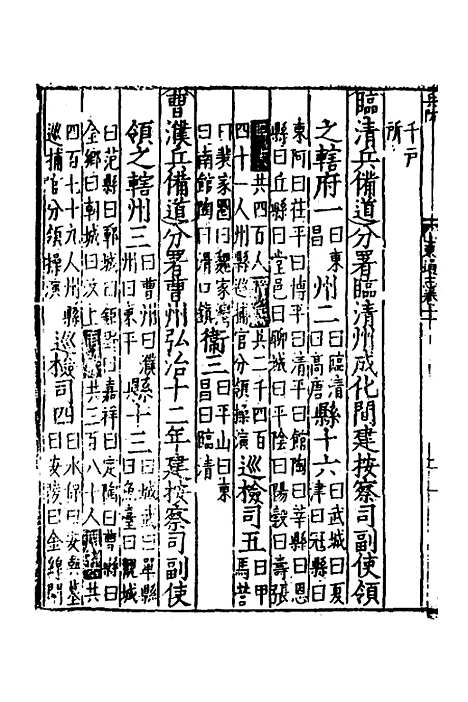 千戶
所
臨清兵備道分署臨清州成化間建按察司副使領
之轄府一曰東昌州二曰臨清曰高唐縣十六曰武城曰夏津曰冠縣曰
東阿曰茌平曰博平曰清平曰館陶曰莘縣曰恩
縣曰丘縣曰堂邑曰聊城曰平陰曰陽穀曰壽張
共四百人共二千四百巡檢司五曰甲馬營
四十一人州縣巡捕官分領操演
曰裴家圈曰魏家灣衛三曰平山曰東昌曰臨清
曰南館陶曰滑口鎮
曹濮兵備道分署曹州弘治十二年建按察司副使
領之轄州三曰曹州曰濮州曰東平縣十三曰城武曰單縣曰魚臺曰
曰范縣曰鄆城曰鉅野曰嘉祥曰定陶曰曹縣曰
金鄉曰朝城曰汶上共三百八十人共
四百七十九人州縣巡捕官分領操演巡檢司四曰水保曰安興墓
曰安陵曰金線閘